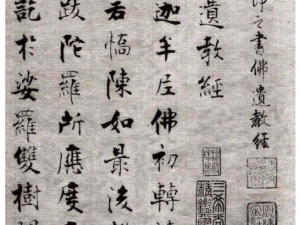 即之書佛遺教經
遺教經
迦牟尼佛初轉
若憍陳如最後
跋陀羅所應度
訖於娑羅雙樹間